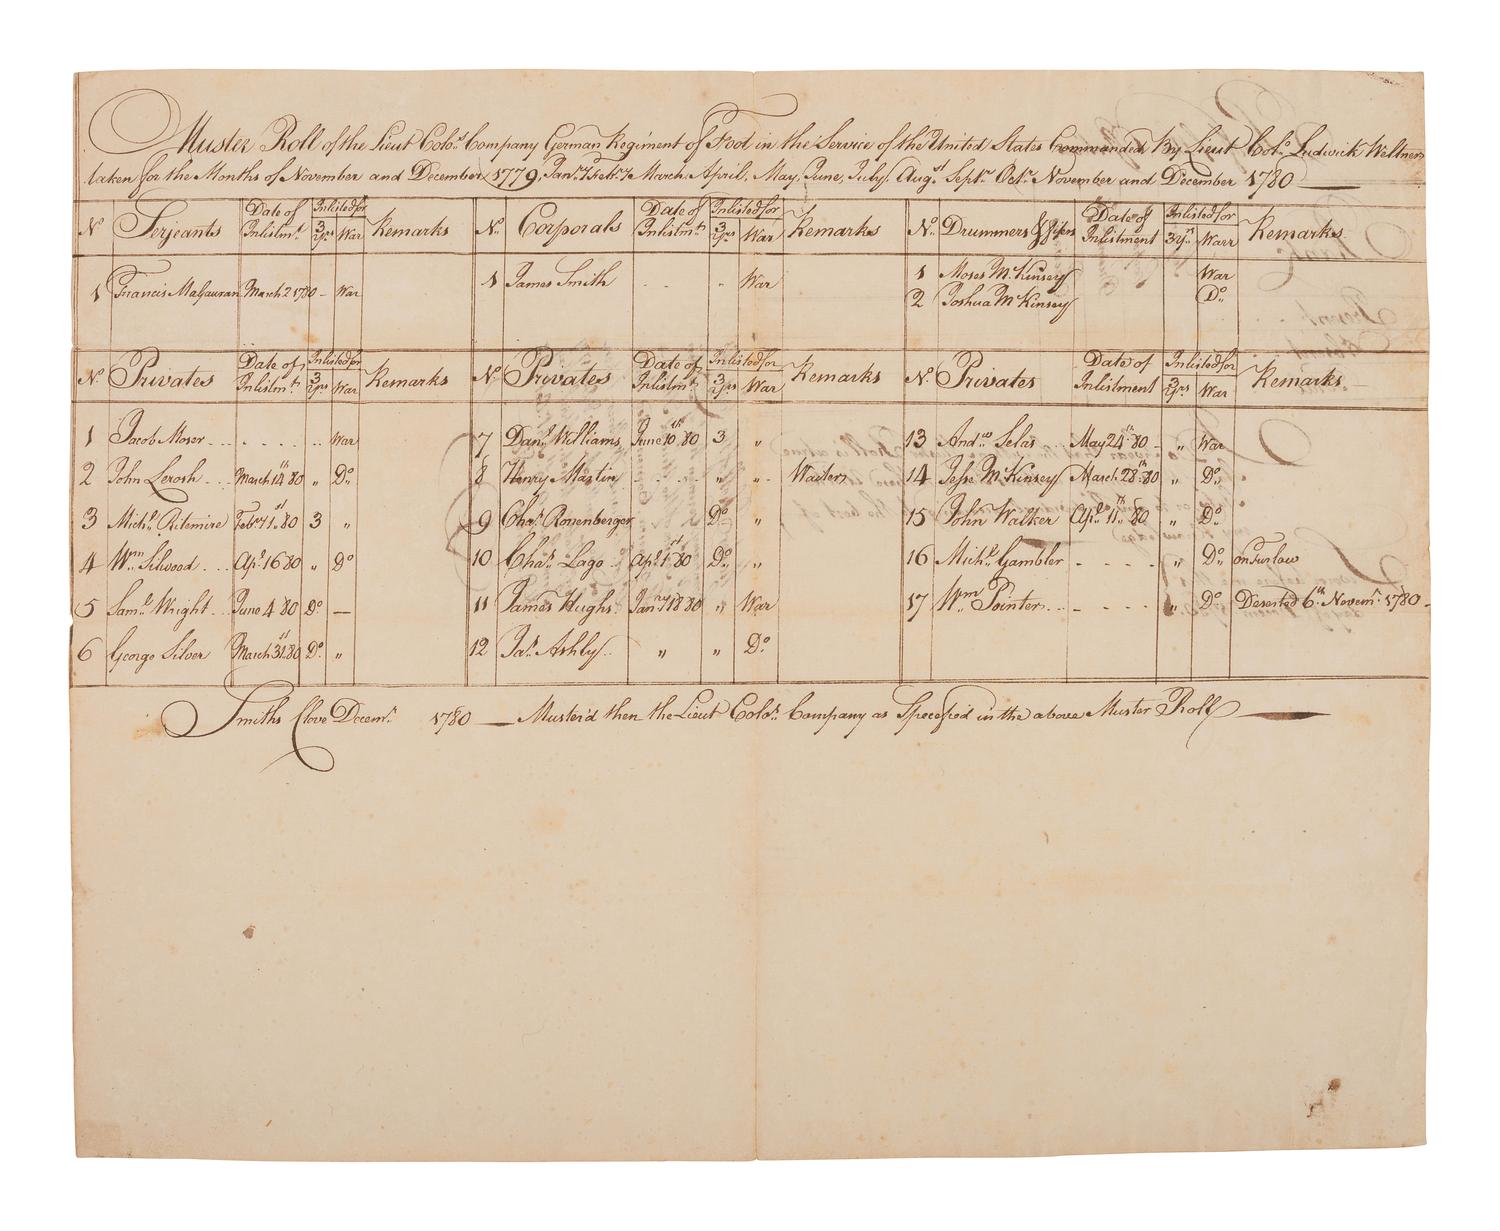 Muster Roll of the Lieut Colo.s Company German Regiment of Foot in the Service of the United States Commanded By Lieut Colo. Ludwick Weltner
taken for the Months of November and December 1779, Jan.ry Feb.ry March, April, May, June, July, Aug.st Sept.r Oct.r November and December 1780
No Serjeants Date of Inlistm.t Inlisted for 3 Yrs War Remarks No. Corporals Date of Inlistm.t Inlisted for 3 Yrs War Remarks No. Drummers & Fifers Date of Inlistment Inlisted for 3 Y.rs Warr Remarks
1 Francis Malgauran March 2 1780 - War 1 James Smith War 1 Moses McKinsey War
2 Joshua McKinsey Do.
No. Privates Date of Inlistm.t Inlisted for 3 Yrs War Remarks No. Privates Date of Inlistm.t Inlisted for 3 Yrs War Remarks No. Privates Date of Inlistment Inlisted for 3 Yrs War Remarks
1 Jacob Moser War 7 Dan.l Williams June 10.th 80 3 " 13 And.w Selas May 24.th 80 " War
2 John Lerosh March 14.th 80 " Do. 8 Henry Martin " " Waiter 14 Jesse McKinsey March 28.th 80 " Do.
3 Mich.l Ritemire Feb.ry 1.st 80 3 " 9 Cha.s Ronenberger Do. " 15 John Walker Ap.l 11.th 80 " Do.
4 Wm. Silwood Ap.l 16 80 " Do 10 Cha.s Lago Ap.l 1.st 80 Do. " 16 Mich.l Gambler " Do. on Furlow
5 Sam.l Wright June 4 80 Do — 11 James Hughs Jan.ry 18 80 " War 17 Wm. Pointer " Do. Deserted 6.th Novem.r 1780
6 George Silver March 31.st 80 Do. " 12 Ja.s Ashby " " Do.
Smiths Clove Decem.r 1780 — Muster'd then the Lieut Colo.s Company as Specefied in the above Muster Roll